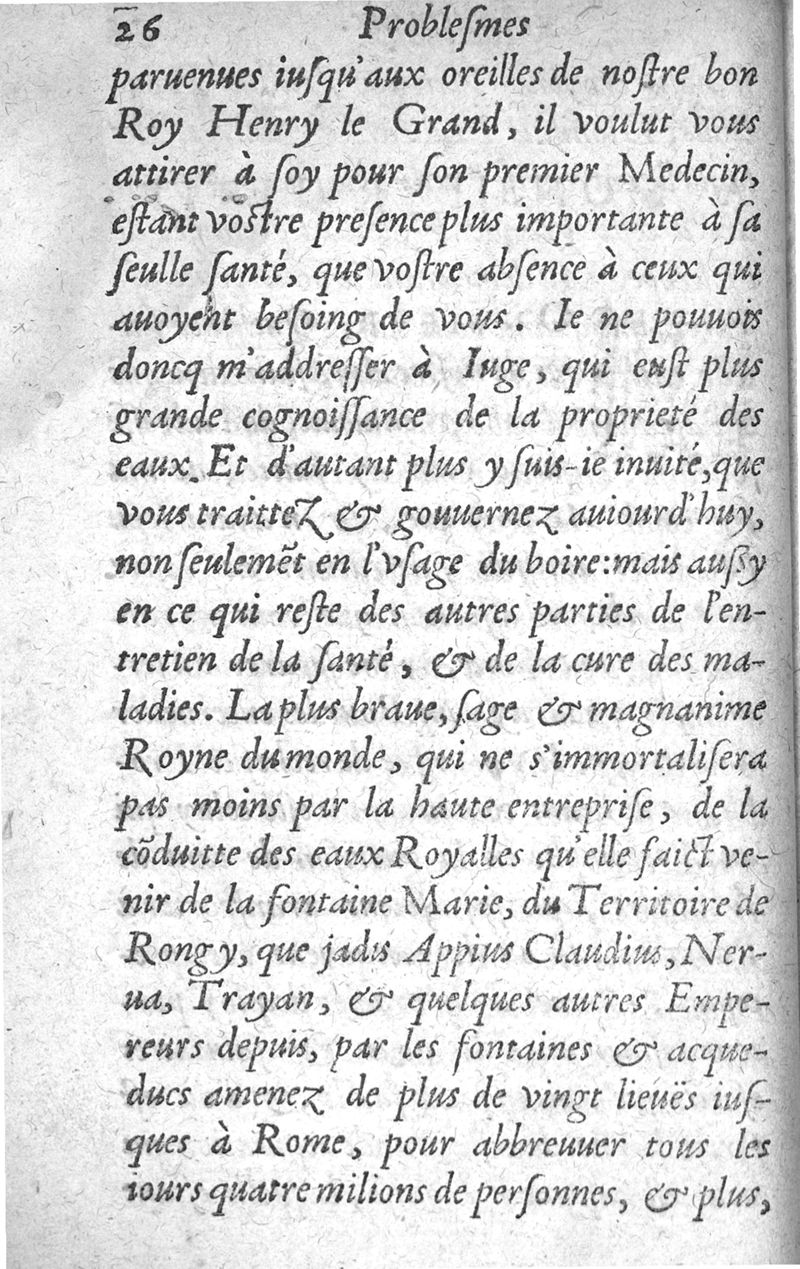 26 Probleſmes
paruenues iuſqu'aux oreilles de noſtre bon
Roy Henry le Grand, il voulut vous
attirer à ſoy pour ſon premier Medecin,
eſtant voſtre preſence plus importante à ſa
ſeulle ſanté, que voſtre abſence à ceux qui
auoyent beſoing de vous. Ie ne pouuois
doncq m'addreſſer à Iuge, qui euſt plus
grande cognoiſſance de la proprieté des
eaux. Et d'autant plus y ſuis-ie inuité, que
vous traittez & gouuernez auiourd'huy,
non ſeulemẽt en l'vſage du boire: mais auſſy
en ce qui reſte des autres parties de l'en-
tretien de la ſanté, & de la cure des ma-
ladies. La plus braue, ſage & magnanime
Royne du monde, qui ne s'immortaliſera
pas moins par la haute entrepriſe, de la
cõduitte des eaux Royalles qu'elle faict ve-
nir de la fontaine Marie, du Territoire de
Rongy, que jadis Appius Claudius, Ner-
ua, Trayan, & quelques autres Empe-
reurs depuis, par les fontaines & acque-
ducs amenez de plus de vingt lieuës iuſ-
ques à Rome, pour abbreuuer tous les
iours quatre milions de perſonnes, & plus,